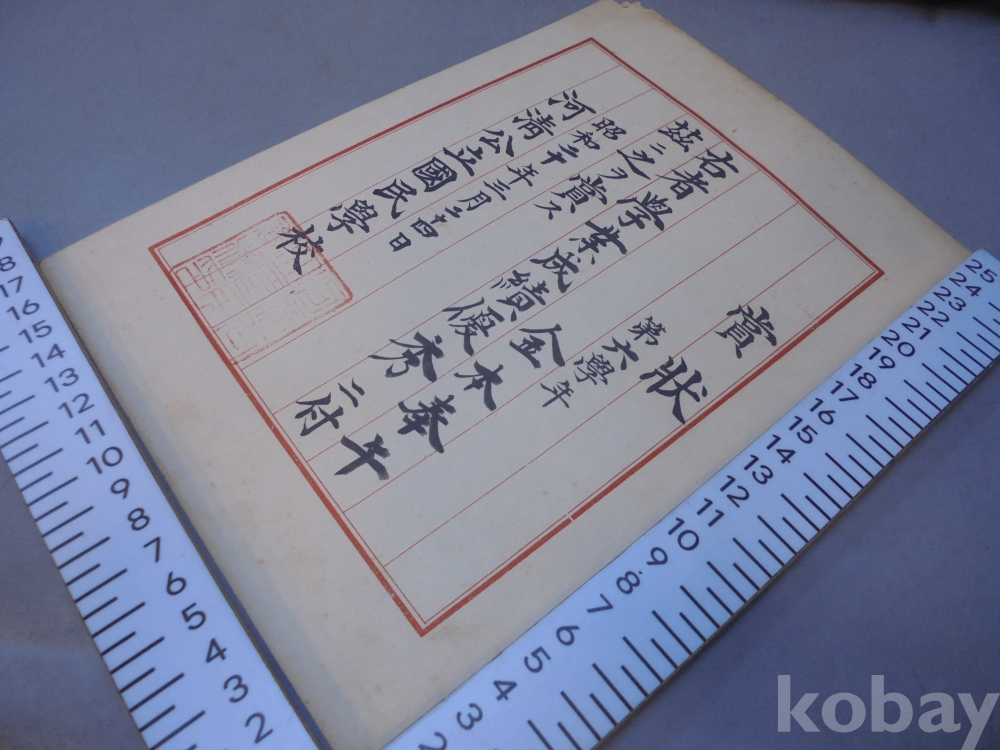 賞狀
第六學年
金本奉午
右者學業成績優秀ニ付
玆ニ之ヲ賞ス
昭和二十年三月二十四日
河清公立國民學校
18
17
16
15
14
13
12
11
10
9
8
7
6
5
4
3
2
25
24
23
22
21
20
19
18
17
16
15
14
13
12
11
10
9
8
7
6
5
4
3
2
kobay